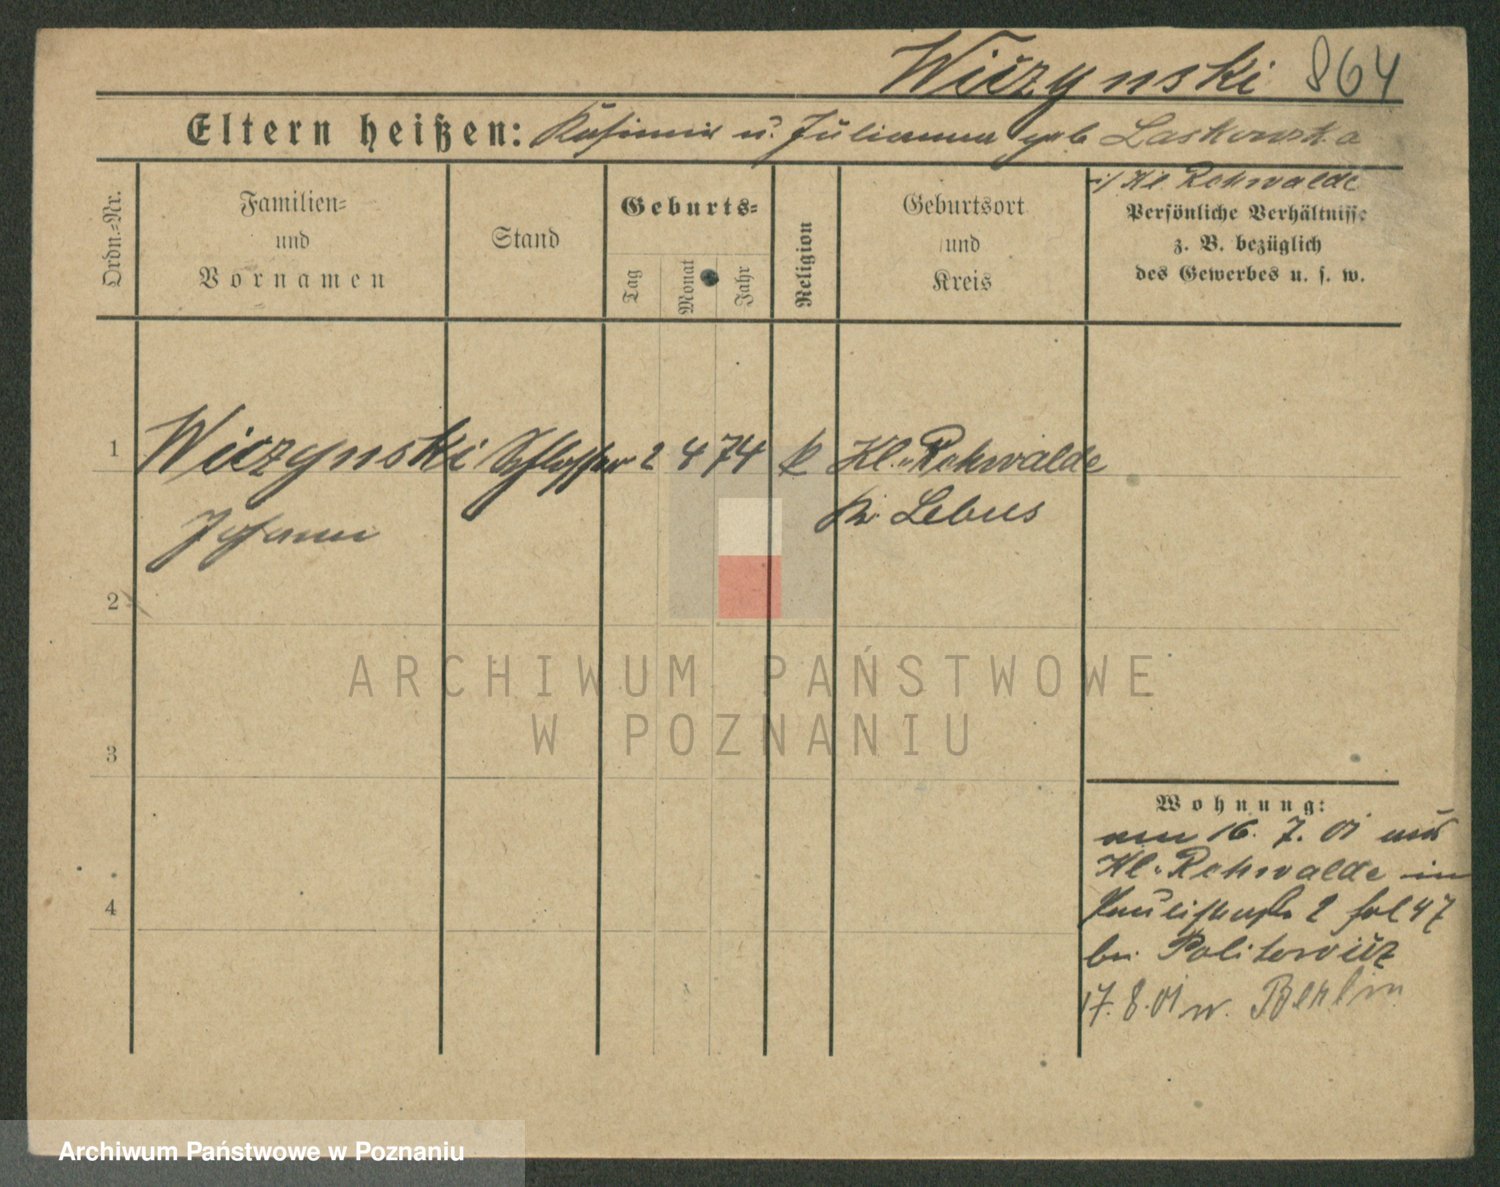 Wiczynski 864
Eltern heißen: Kasimir u. Julianna geb Laskowska
i/ Kl Rehwalde
Ordn.-Nr.
Familien-
und
Vornamen
Stand
Geburts-
Tag
Monat
Jahr
Religion
Geburtsort
und
Kreis
Persönliche Verhältnisse
z. B. bezüglich
des Gewerbes u. s. w.
1 Wiczynski Schlosser 2 4 74 k Kl. Rehwalde
Johann Kr. Lebus
2
3
4
ARCHIWUM PAŃSTWOWE
W POZNANIU
Wohnung:
am 16. 7. 01 aus
Kl. Rehwalde in
2 fol 47
bei Politowicz
17.8.01 n. Berlin
Archiwum Państwowe w Poznaniu